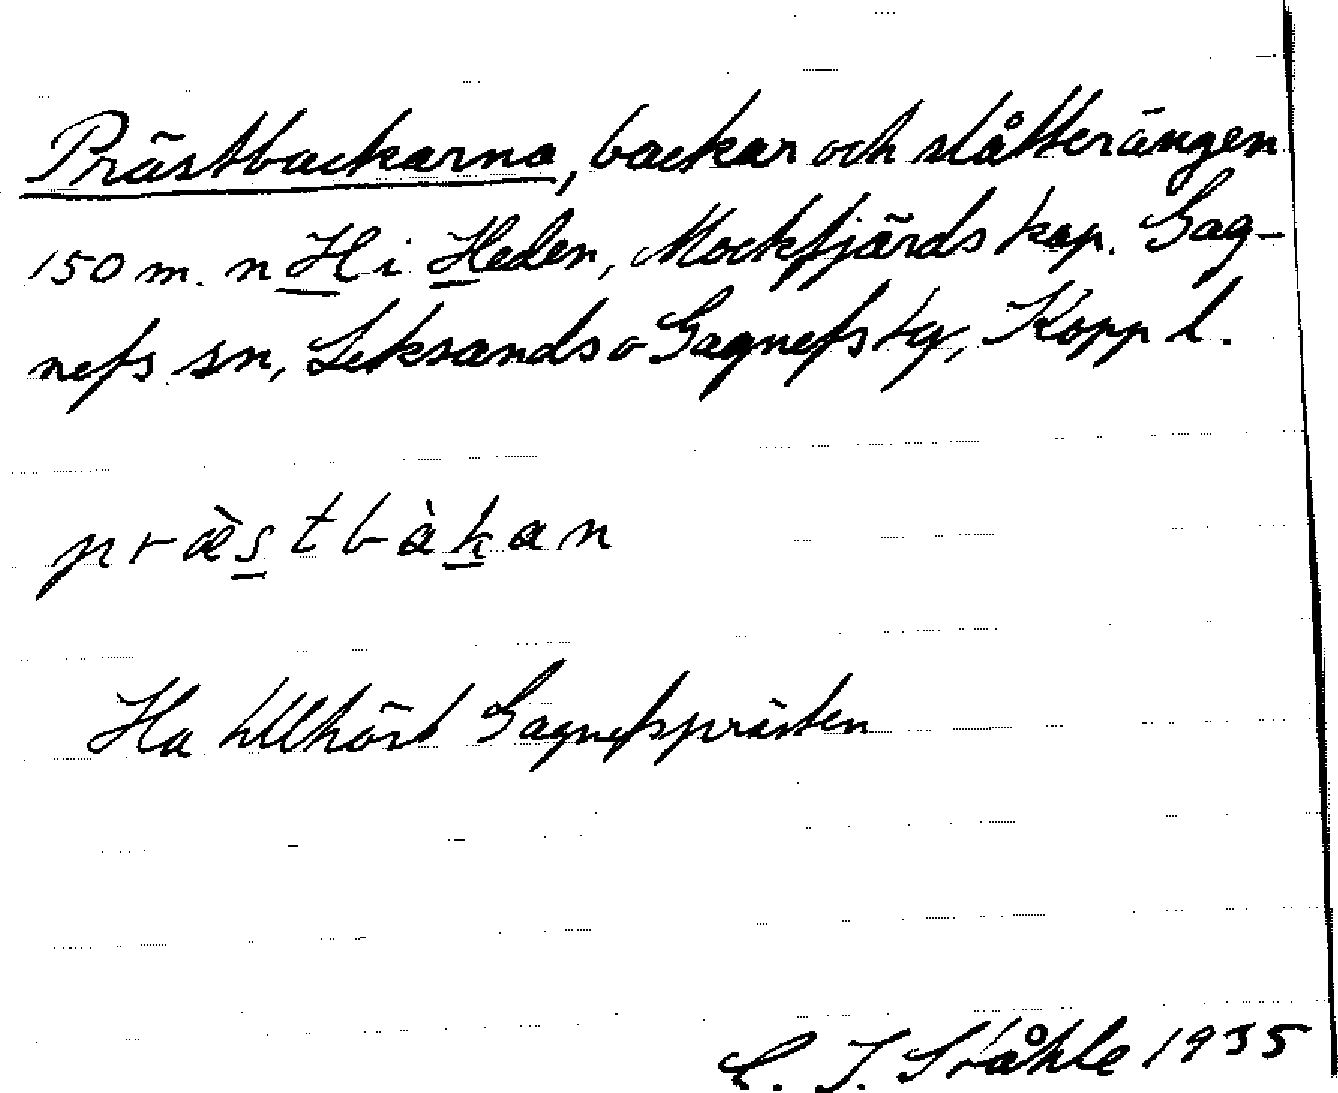 Prästbackarna, backar och slåtterängen
150 m. n H i Heden, Mockfjärds kap. Gag-
nefs sn, Leksands o Gagnefs tg, Kopp l.
præ̀stbàkan
Ha tillhört Gagnefsprästen
C. I. Ståhle 1935